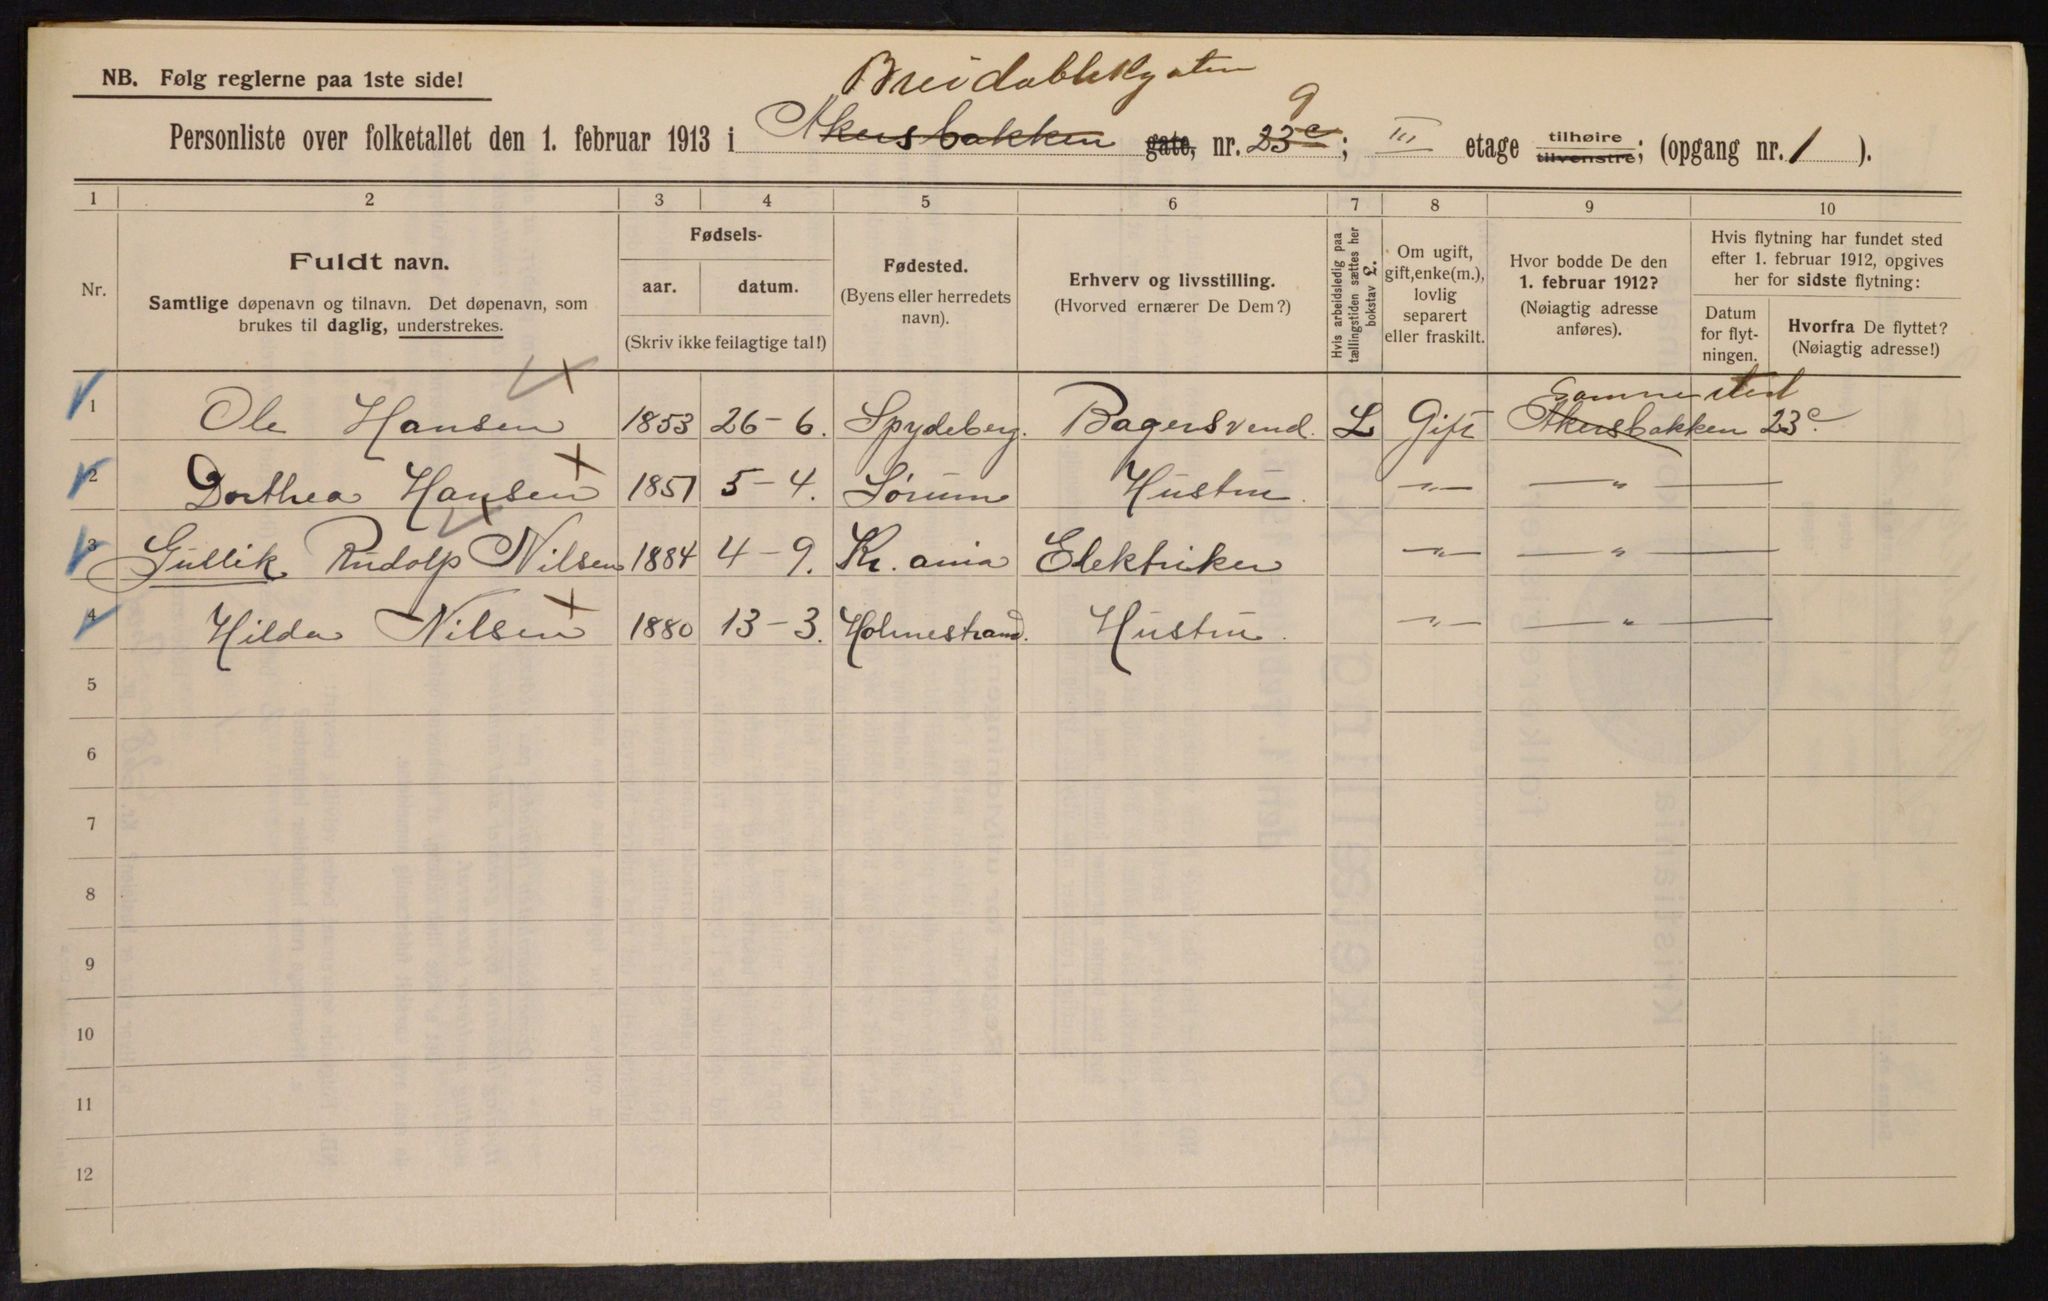 Breidablikgaten
NB. Følg reglerne paa 1ste side!
9
Personliste over folketallet den 1. februar 1913 i Akersbakken gate, nr. 23c; III etage tilhøire tilvenstre; (opgang nr. 1 ).
1 2 3 4 5 6 7 8 9 10
Nr.
Fuldt navn.
Samtlige døpenavn og tilnavn. Det døpenavn, som
brukes til daglig, understrekes.
Fødsels-
aar. datum.
(Skriv ikke feilagtige tal!)
Fødested.
(Byens eller herredets
navn).
Erhverv og livsstilling.
(Hvorved ernærer De Dem?)
Hvis arbeidsledig paa
tællingstiden sættes her
bokstav L.
Om ugift,
gift, enke(m.),
lovlig
separert
eller fraskilt.
Hvor bodde De den
1. februar 1912?
(Nøiagtig adresse
anføres).
Hvis flytning har fundet sted
efter 1. februar 1912, opgives
her for sidste flytning:
Datum
for flyt-
ningen.
Hvorfra De flyttet?
(Nøiagtig adresse!)
Samme sted
1 Ole Hansen 1853 26-6. Spydeberg. Bagersvend. L Gift Akersbakken 23c.
2 Dorthea Hansen 1851 5-4. Sørum Hustru. -„- -„-
3 Gullik Rudolf Nilsen 1884 4-9. Kr. ania Elektriker -„- -„-
4 Hilda Nilsen 1880 13-3. Holmestrand. Hustru. -„- -„-
5
6
7
8
9
10
11
12